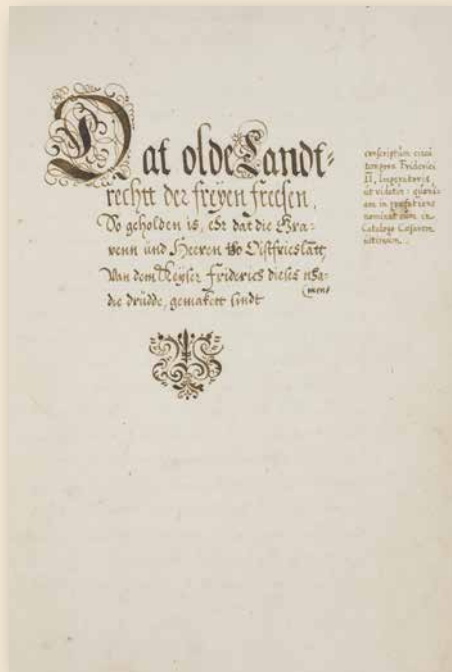 Dat olde Landt-
rechtt der freyen freesen,
So geholden is, ehr dat die Gra-
venn und Heeren tho Oistfrieslātt,
Van dem Keyser friderich dieses nha-
mens
die drüdde, gemakett sindt
conscriptum circa
tempora Friderici
II, Imperatoris,
ut videtur: quando
am in praefatione
nominat eum in
Catalogo Caesarum
ultimum.